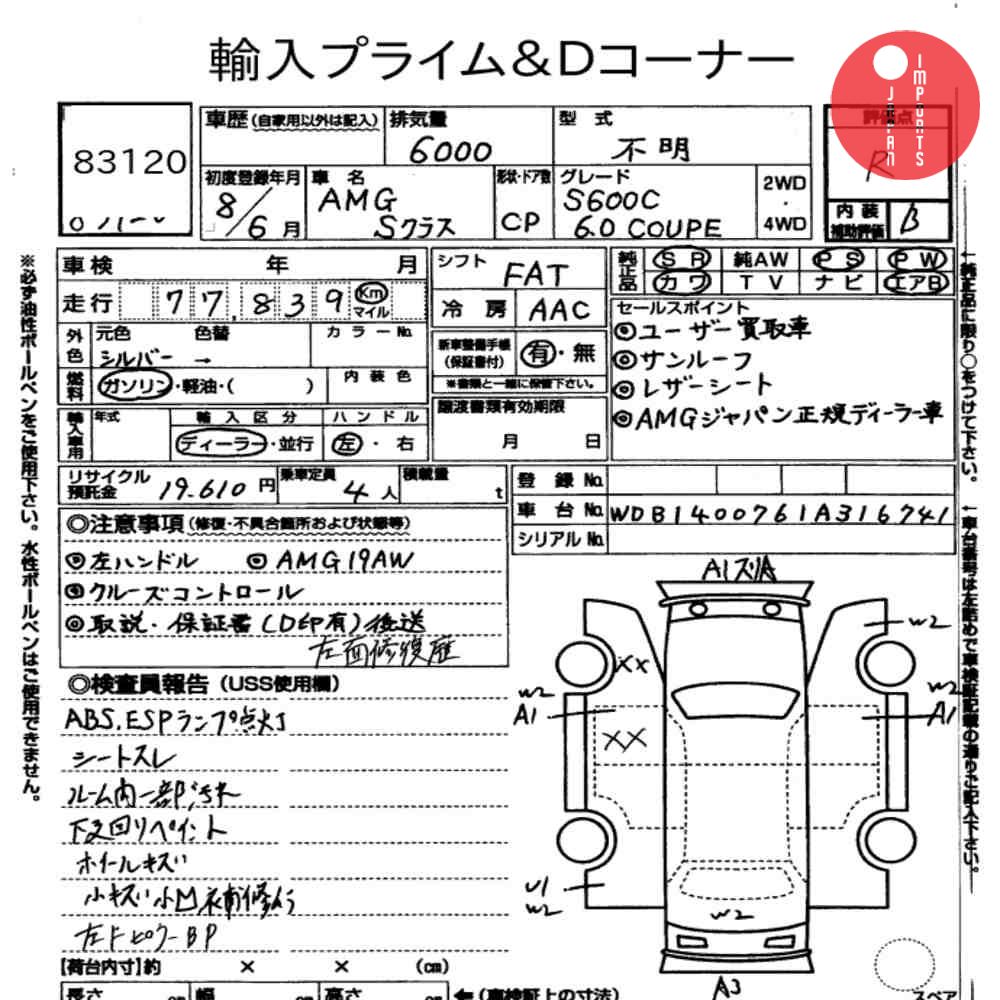 輸入プライム&Dコーナー
JAPAN IMPORTS
83120
車歴(自家用以外は記入)
排気量
6000
型式
不明
評価点
R
初度登録年月
8/6月
車名
AMG
Sクラス
形状・ドア数
CP
グレード
S600C
6.0 COUPE
2WD
・
4WD
内装
補助評価
B
車検 年 月
シフト
FAT
純正品
SR 純AW PS PW
カワ TV ナビ エアB
走行 77,839 Km
マイル
冷房 AAC
セールスポイント
◎ユーザー買取車
◎サンルーフ
◎レザーシート
◎AMGジャパン正規ディーラー車
外色
元色 色替 カラーNo.
シルバー →
新車整備手帳
(保証書付)
有・無
※書類と一緒に保管下さい。
燃料
ガソリン・軽油・( )
内装色
譲渡書類有効期限
月 日
輸入車用
年式 輸入区分 ハンドル
ディーラー・並行 左・右
リサイクル
預託金
19.610円
乗車定員
4人
積載量
t
登録No.
車台No. WDB1400761A316741
シリアルNo.
◎注意事項(修復・不具合箇所および状態等)
◎左ハンドル ◎AMG19AW
◎クルーズコントロール
◎取説・保証書(D印有)後送
左面修復歴
◎検査員報告(USS使用欄)
ABS.ESPランプ点灯
シートスレ
ルーム内一部汚れ
下回りペイント
ホイールキズ
小キズ小凹補修有
左FピラーBP
【荷台内寸】約 × × (cm)
長さ cm 幅 cm 高さ cm
←(車検証上の寸法)
A1ズリA
W2
XX
W2
A1
XX
W2
A1
U1
W2
W2
A3
スペア
※必ず油性ボールペンをご使用下さい。水性ボールペンはご使用できません。
←純正品に限り○をつけて下さい。
←車台番号は左詰めで車検証記載の通りご記入下さい。